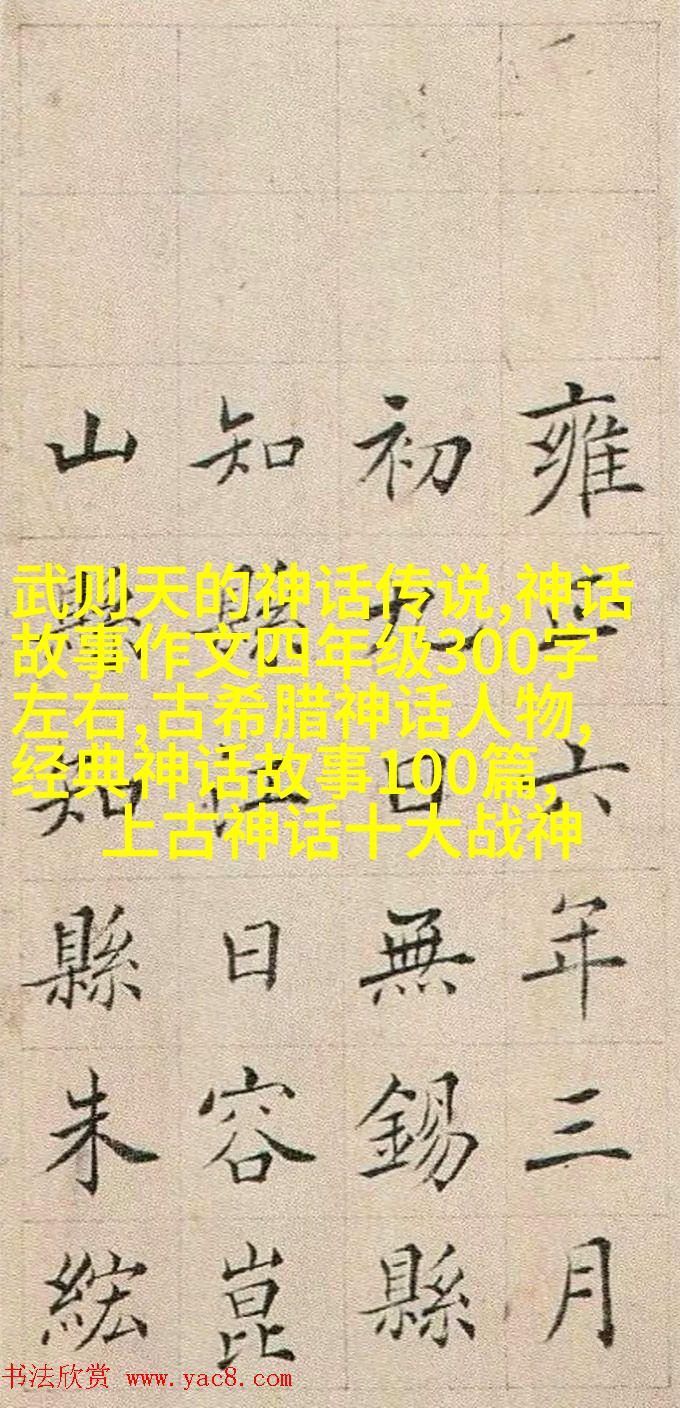 雍正六年三月
初九日無錫縣
知縣江日容崑
山縣知縣朱紘
武则天的神话传说,神话
故事作文四年级300字
左右,古希腊神话人物,
经典神话故事100篇,
上古神话十大战神
书法欣赏 www.yac8.com